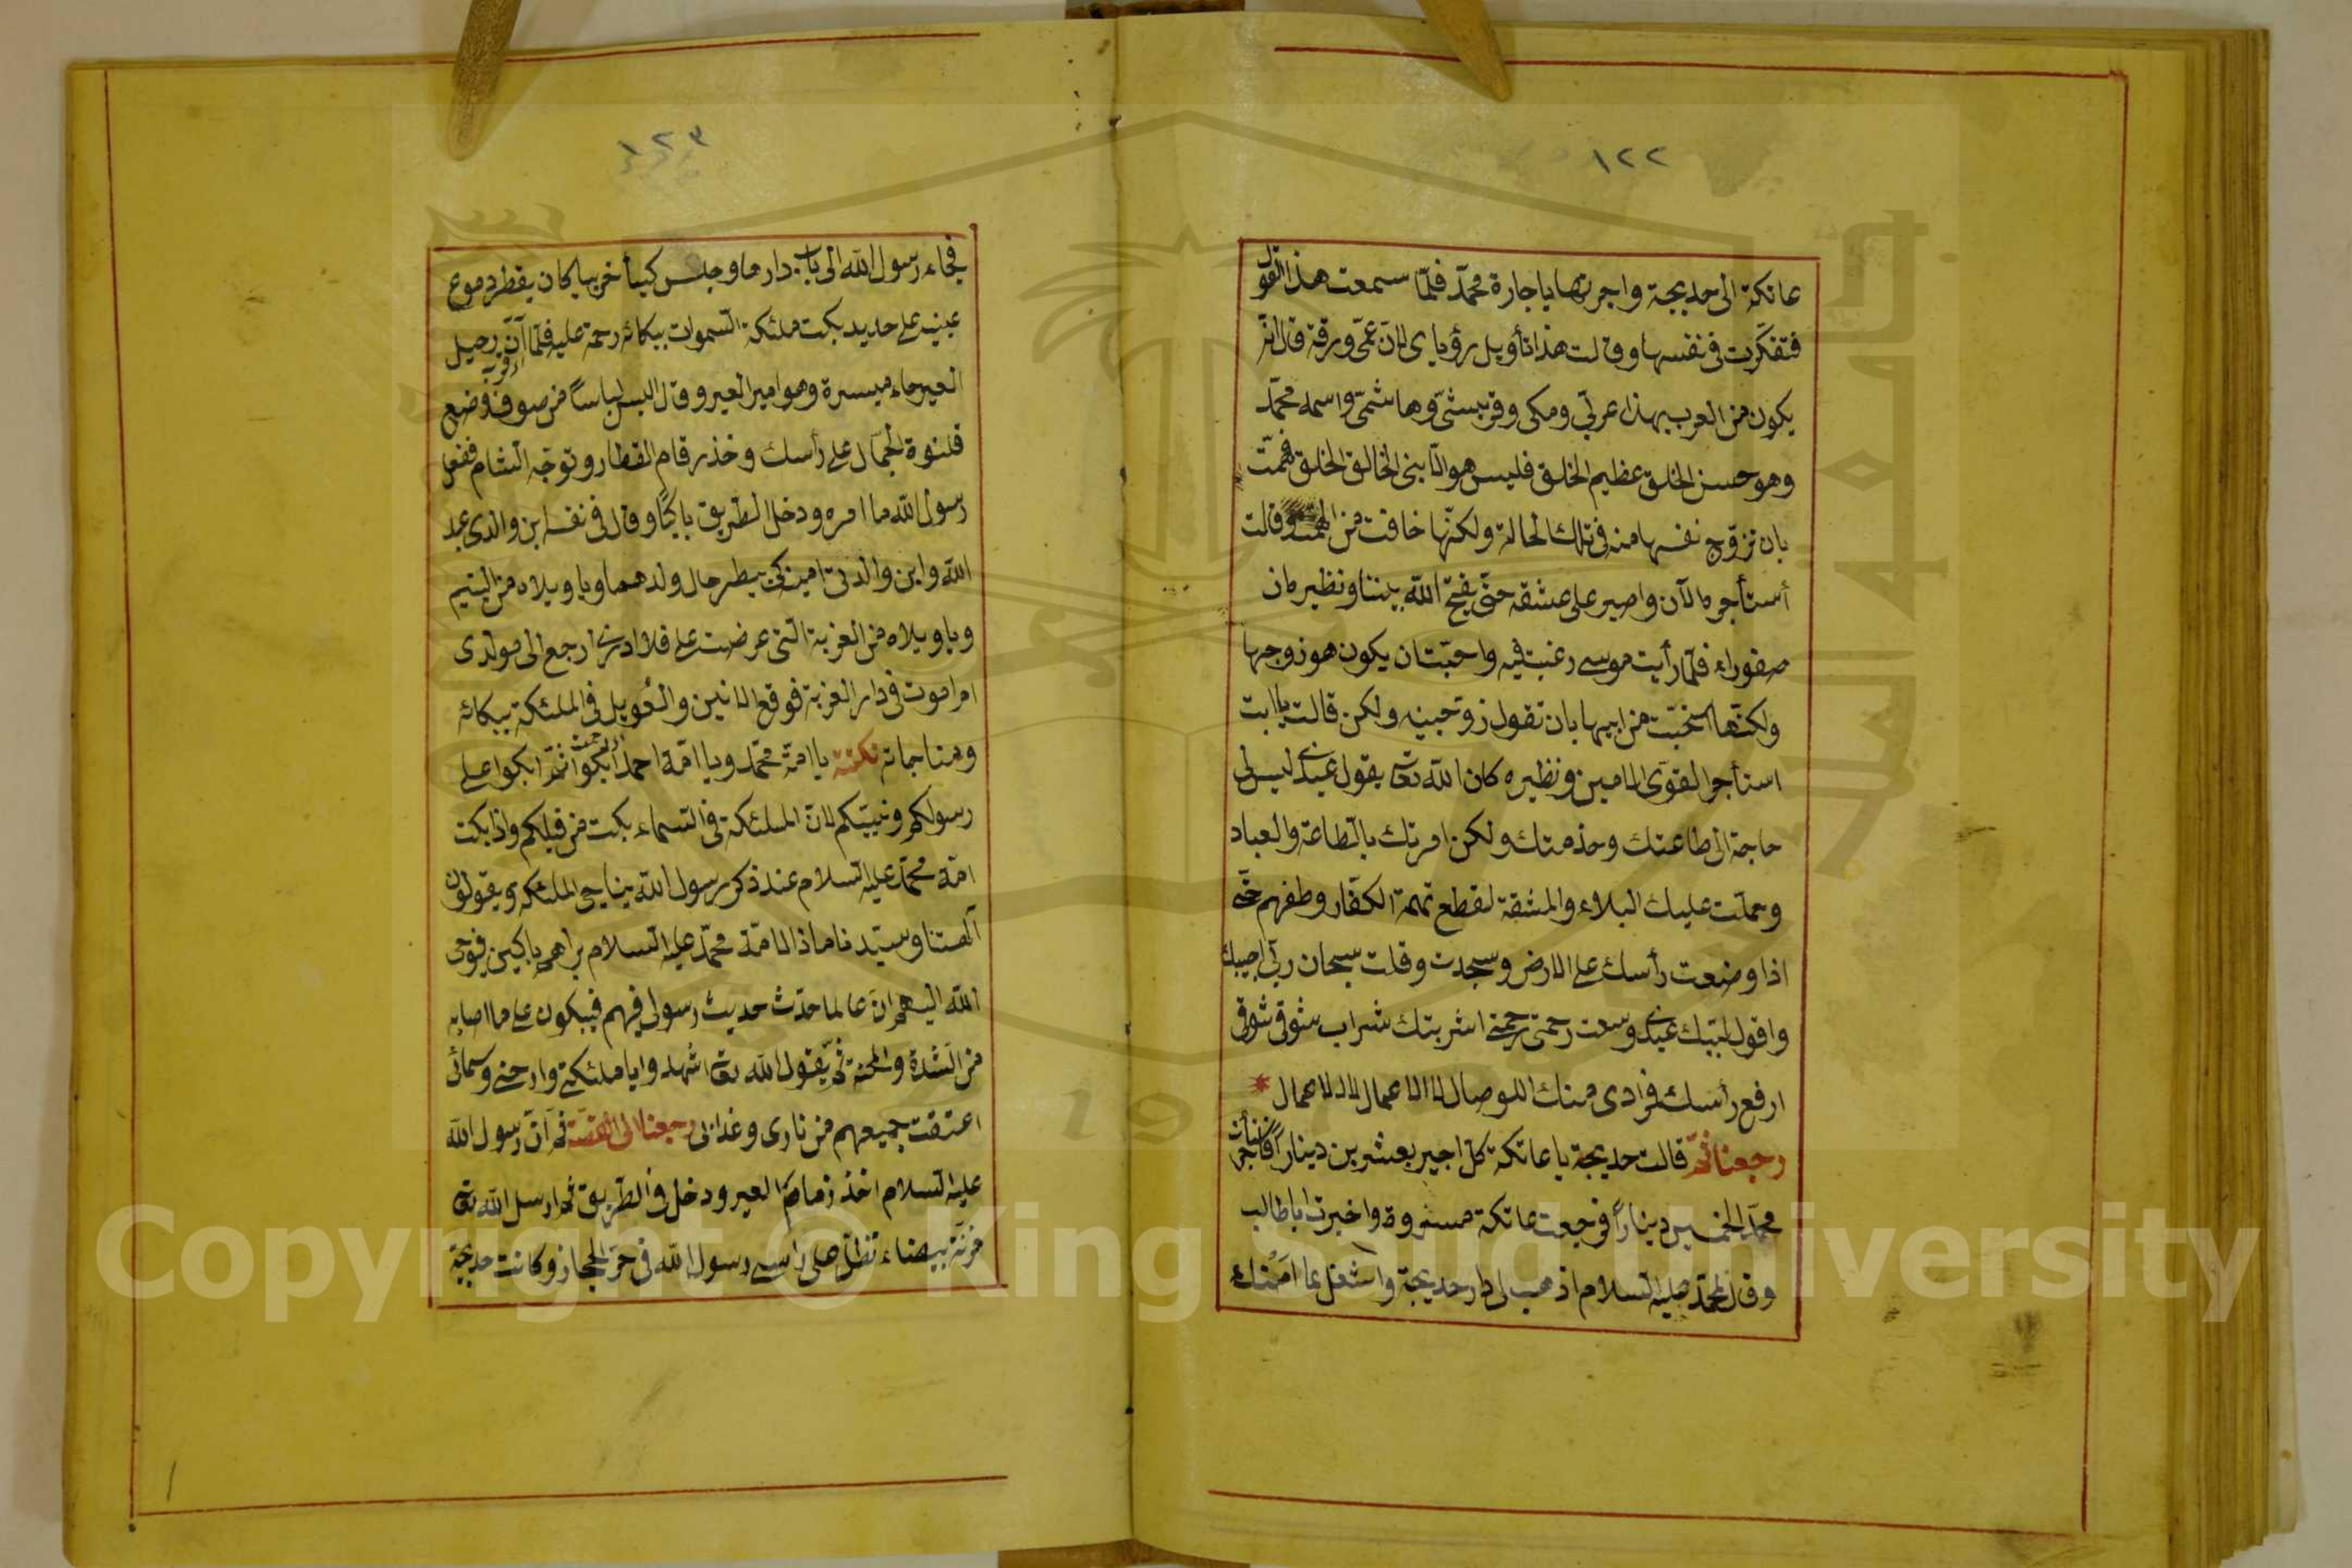 ١٢٢
عاتكة الى خديجة واجرتها يا جارة محمّد فلمّا سمعت هذا القول
فتفكّرت فى نفسها وقالت هذا تأويل رؤياى لانّ عمّى ورقة قال انّه
يكون من العرب بهذا عربىّ ومكى وقريشىّ وهاشمىّ واسمه محمّد
وهو حسن الخلق عظيم الخلق فليس هو الّا نبى الخالق الخلق فهمّت
بان تزوّج نفسها منه فى تلك الحالة ولكنّها خافت من التهمة وقالت
أستأجره الآن واصبر على عشقه حتّى يفتح الله بيننا ونظيره ان
صفوراء فلمّا رأيت موسى رغبت فيه واحبّت ان يكون هو زوجها
ولكنّها استحيت من ابيها بان تقول زوّجنيه ولكن قالت يا ابت
استأجر القوىّ الامين ونظيره كان الله تعالى يقول عبدى ليس لى
حاجة الى طاعتك وخدمتك ولكن امرتك بالطاعة والعباد
وحملت عليك البلاء والمشقة لقطع تهمة الكفّار وطعنهم حتّى
اذا وضعت رأسك على الارض وسجدت وقلت سبحان ربّى اجيبك
واقول لبّيك عبدى وسعت رحمتى اشربتك شراب شوقى شوقى
ارفع رأسك فمرادى منك الوصال لا الاعمال لا الاعمال
رجعنا ثمّ قالت خديجة يا عاتكة كل اجير بعشرين دينارا
محمّدا لخمسين دينارا فرجعت عاتكة مسرورة واخبرت ابا طالب
وقال لمحمّد عليه السلام اذهب الى دار خديجة واشتغل بما امرتك
١٢٣
فجاء رسول الله الى باب دارها وجلس كئيبا حزينا كان يقطر دموع
عينيه على خديه بكت ملئكة السموات ببكائه رحمة عليه فلمّا آن رحيل
العير جاء ميسرة وهو امير العير وقال البس لباسا من صوف وضع
قلنسوة الجمّال على رأسك وخذ زمام القطار وتوجّه الشام ففعل
رسول الله ما امره ودخل الطريق باكيا وقال فى نفسه اين والدى عبد
الله واين والدتى امينة كى ينظر حال ولدهما ويا ويلاه من اليتيم
ويا ويلاه من الغربة التى عرضت على فلا ادرى ارجع الى مولدى
ام اموت فى دار الغربة فوقع الانين والعويل فى الملئكة ببكائه
ومناجاته نكتة يا امّة محمّد ويا امّة احمد ابكوا ثمّ ابكوا على
رسولكم ونبيّكم لانّ الملئكة فى السماء بكت من قبلكم واذا بكت
امّة محمّد عليه السلام عند ذكر رسول الله يناجى الملئكة ويقولون
آلهنا وسيّدنا ماذا لامّة محمّد عليه السلام نراهم باكين فيوحى
الله اليهم ان عالما حدّث حديث رسولى فيهم فيبكون على ما اصابه
من الشدة والمحنة ثمّ يقول الله تعالى اشهدوا يا ملئكتى وارضى وسمائى
اعتقت جميعهم من نارى وعذابى رجعنا الى القصّة ثمّ انّ رسول الله
عليه السلام اخذ زمام العير ودخل فى الطريق ثم ارسل الله تعالى
مزنة بيضاء تظلّ على رأس رسول الله فى حرّ الحجاز وكانت خديجة
Copyright © King Saud University